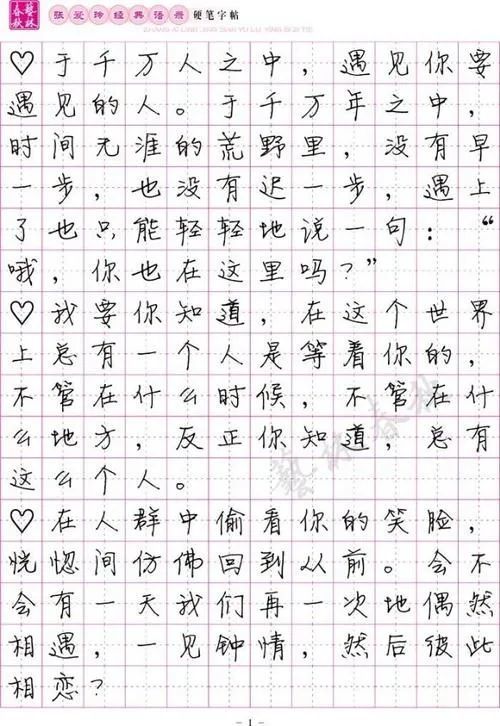 藝林春秋 张爱玲经典语录 硬笔字帖
ZHANG AI LING JING DIAN YU LU YING BI ZI TIE
♡于千万人之中，遇见你要
遇见的人。于千万年之中，
时间无涯的荒野里，没有早
一步，也没有迟一步，遇上
了也只能轻轻地说一句：“
哦，你也在这里吗？”
♡我要你知道，在这个世界
上总有一个人是等着你的，
不管在什么时候，不管在什
么地方，反正你知道，总有
这么个人。
♡在人群中偷看你的笑脸，
恍惚间仿佛回到从前。会不
会有一天我们再一次地偶然
相遇，一见钟情，然后彼此
相恋？
藝林春秋
- 1 -